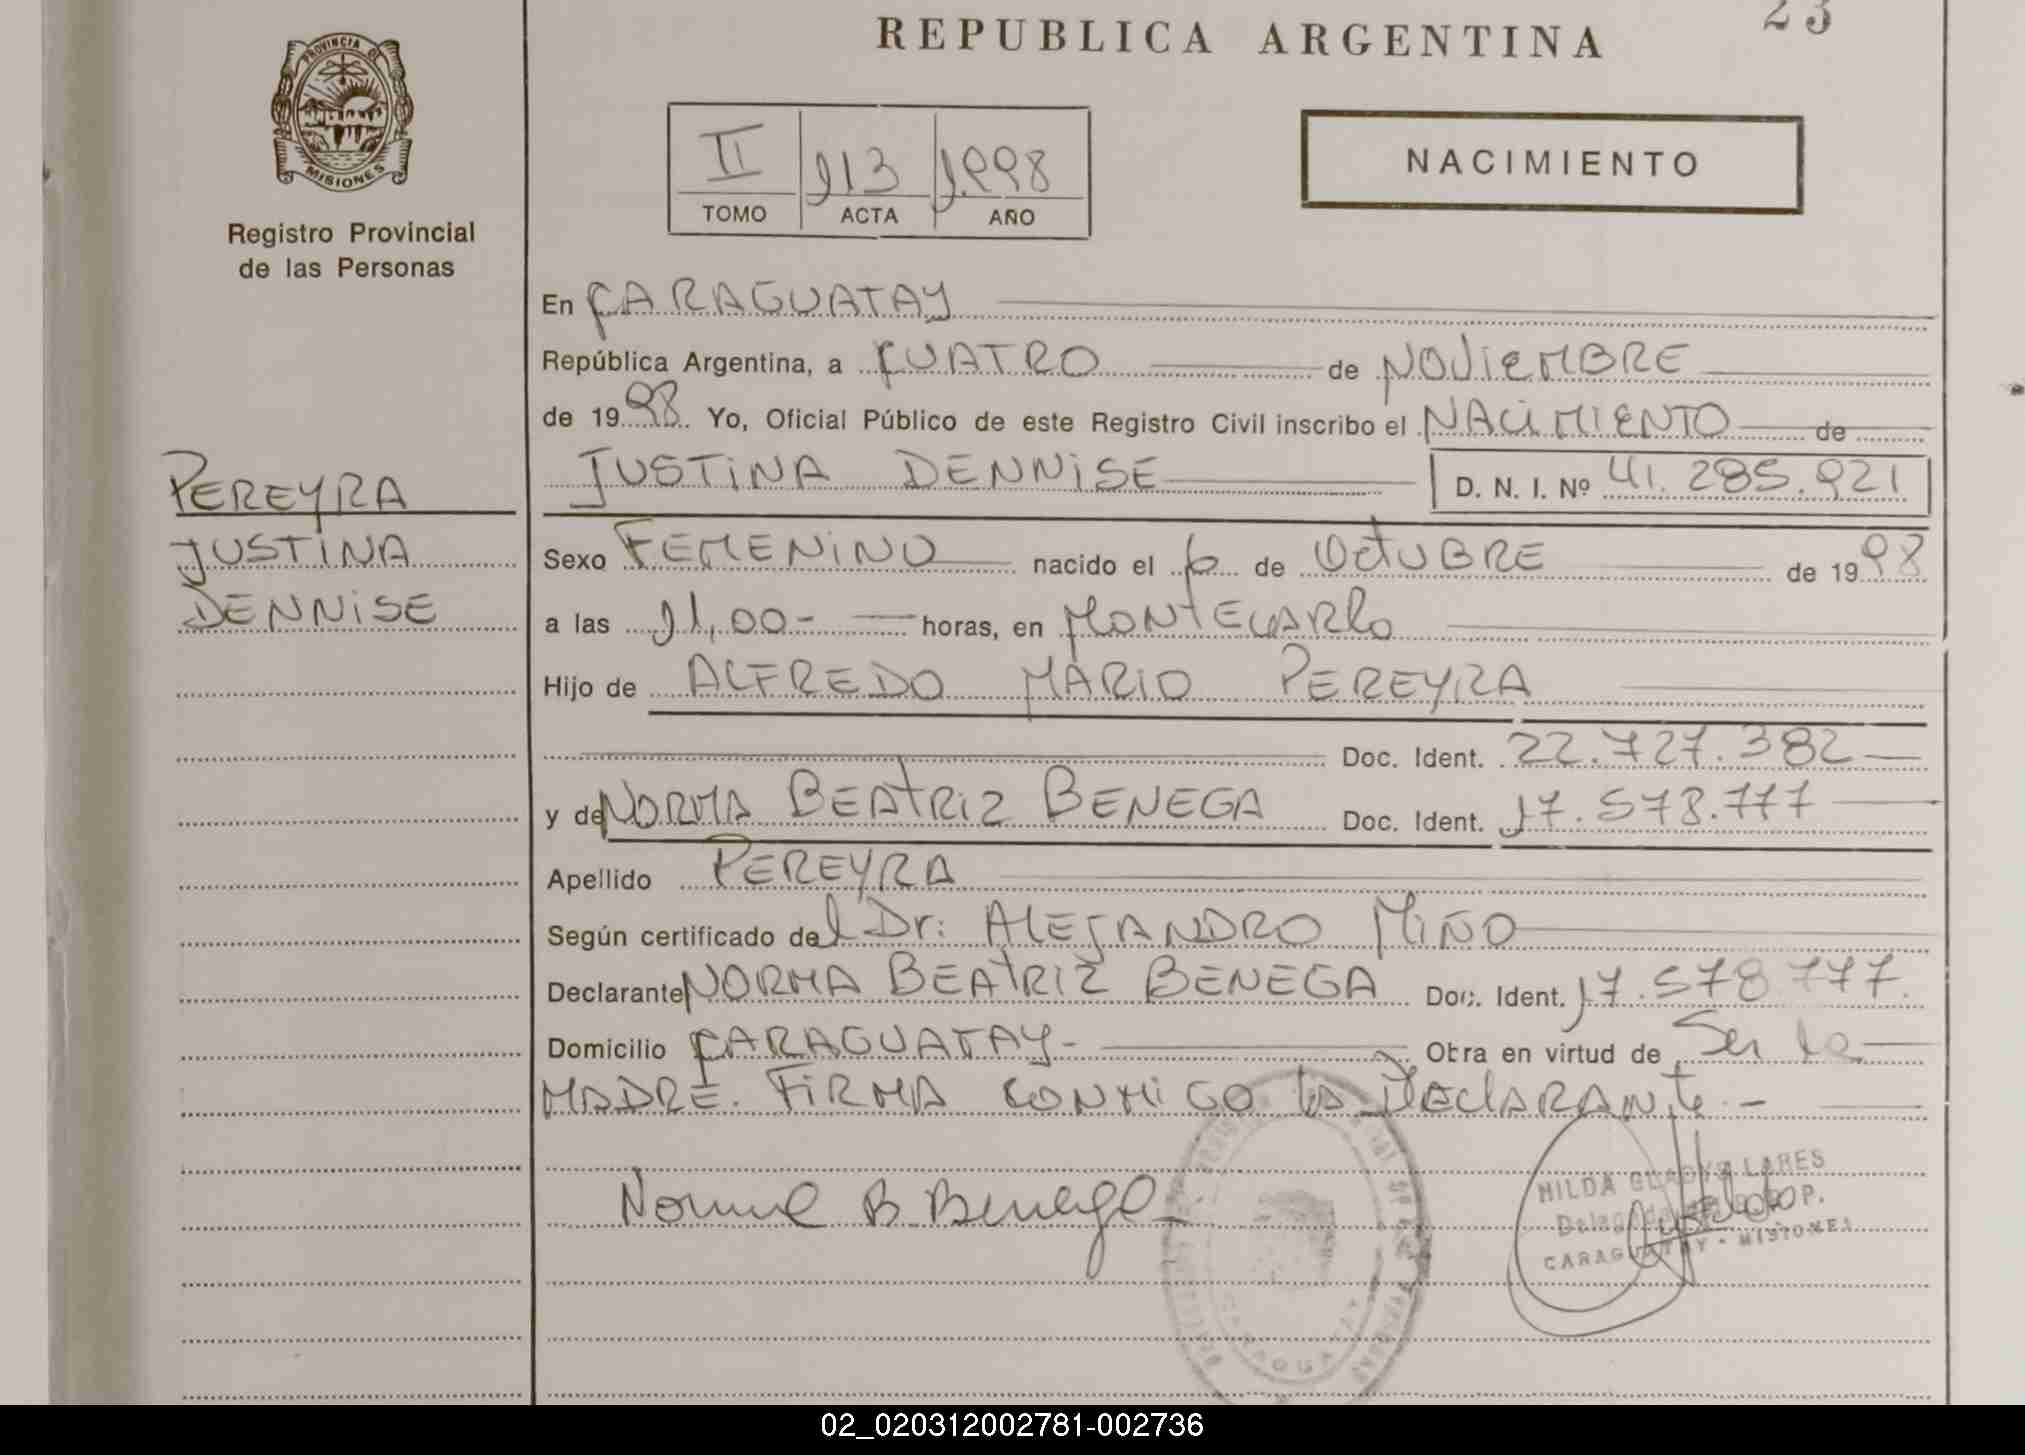 23
REPUBLICA ARGENTINA
PROVINCIA DE
MISIONES
Registro Provincial
de las Personas
II 113 1.998
TOMO ACTA AÑO
NACIMIENTO
En CARAGUATAY
República Argentina, a CUATRO de NOViEMBRE
de 1998. Yo, Oficial Público de este Registro Civil inscribo el NACiMIENTO de
JUSTiNA DENNiSE D. N. I. Nº 41.285.921
PEREYRA
JUSTiNA
DENNiSE
Sexo FEMENiNO nacido el 6 de OctUBRE de 1998
a las 11,00- horas, en MONTECARlo
Hijo de ALFREDO MARiO PEREYRA
Doc. Ident. 22.727.382
y de NORMA BEAtRiZ BENEGA Doc. Ident. 17.578.777
Apellido PEREYRA
Según certificado del Dr: ALEJANDRO MiÑO
Declarante NORMA BEAtRiZ BENEGA Doc. Ident. 17.578.777.
Domicilio CARAGUATAY- Obra en virtud de Ser la
MADRE. FiRMA CONMiGO lA DEClARANte.-
Norma B Benega
HILDA GLADYS LARES
CARAGUATAY - MISIONES
CARAGUATAY
02_020312002781-002736